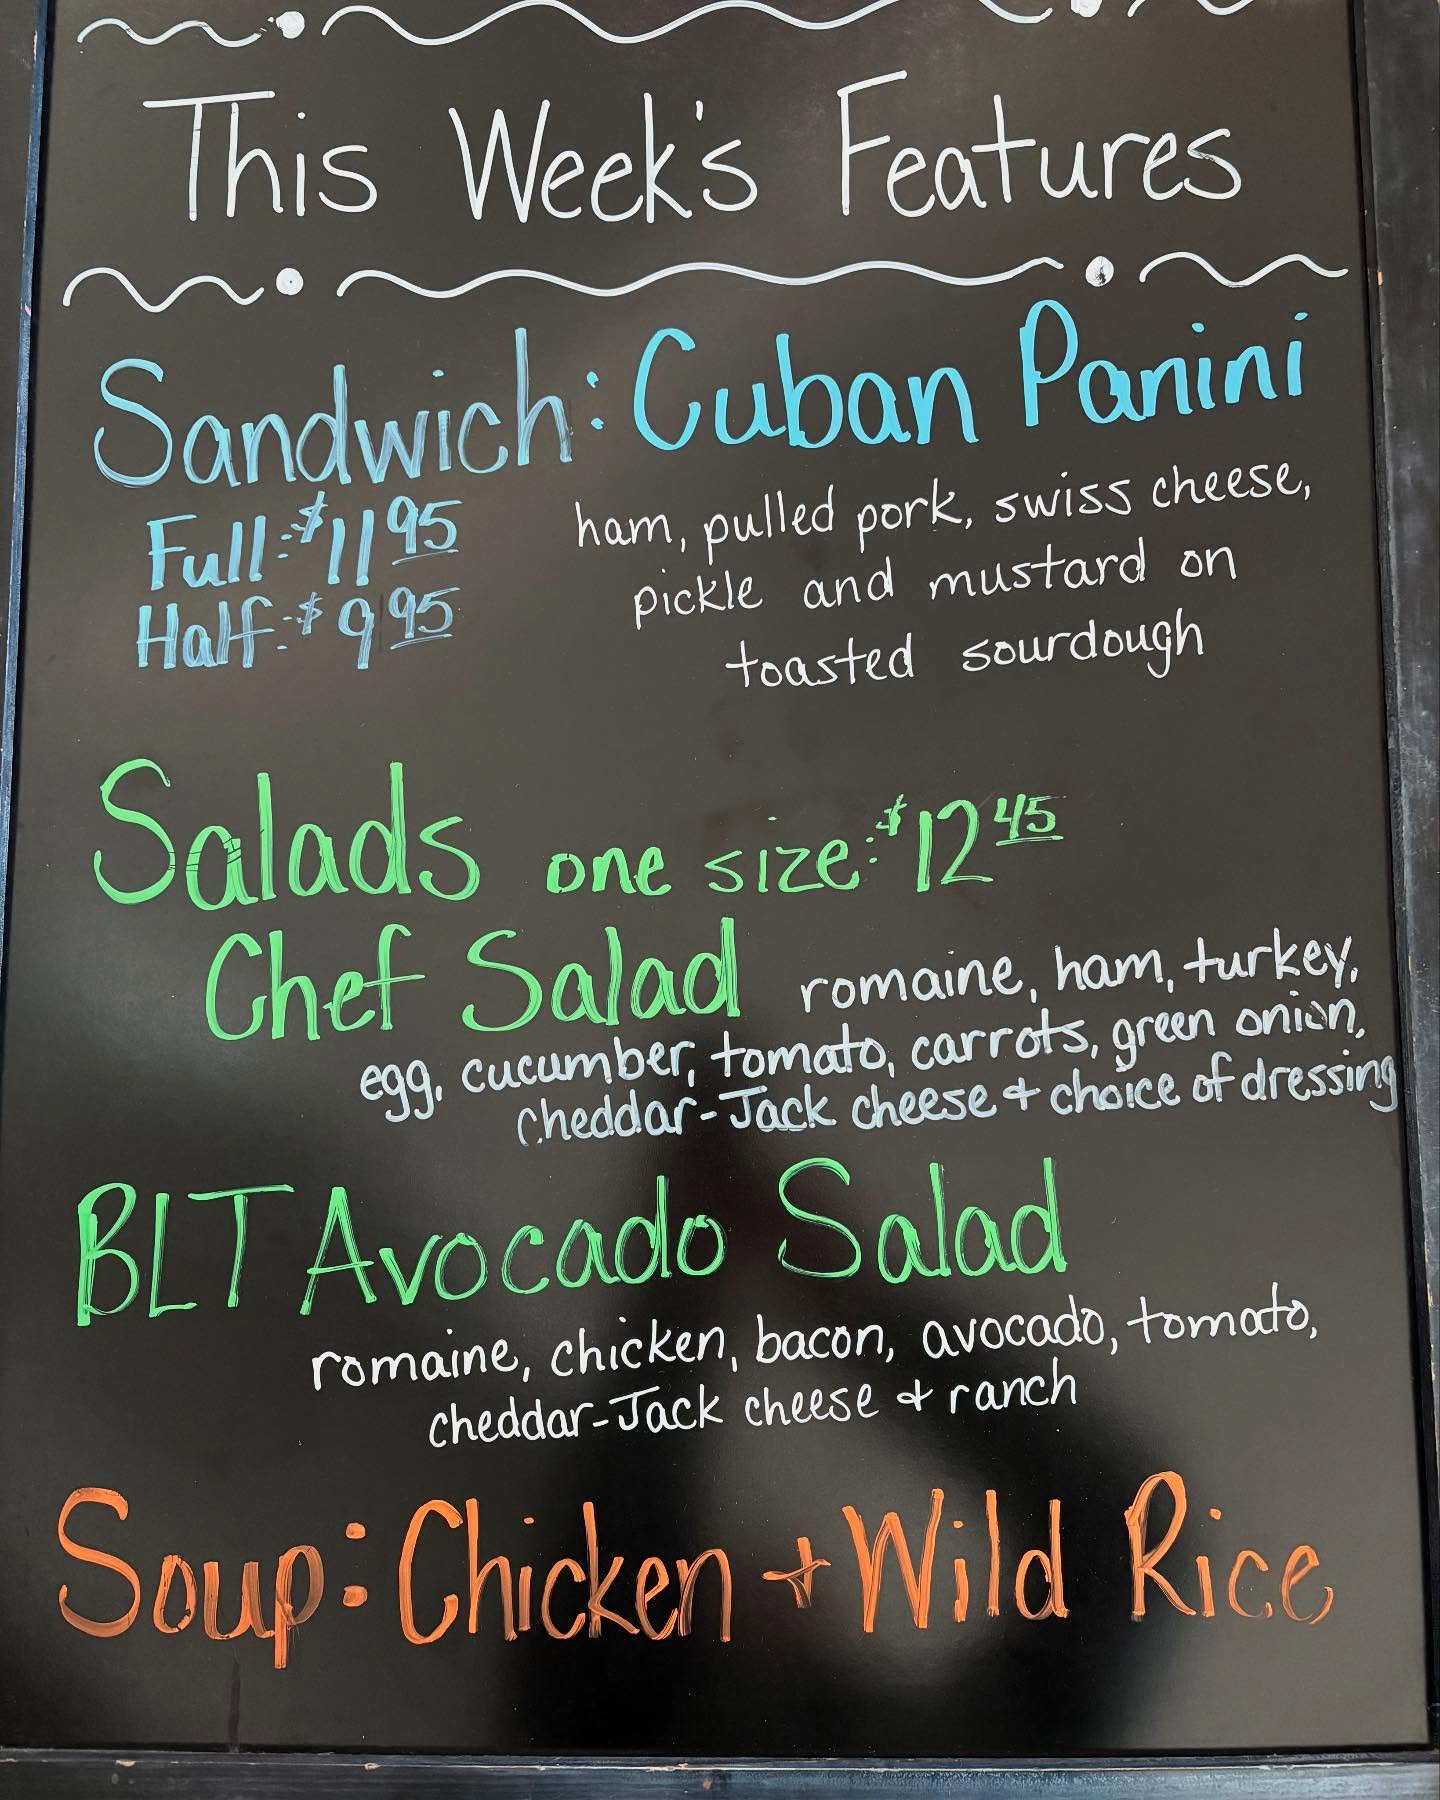 This Week's Features
Sandwich: Cuban Panini
Full: $11 95
Half: $9 95
ham, pulled pork, swiss cheese,
pickle and mustard on
toasted sourdough
Salads one size: $12 45
Chef Salad romaine, ham, turkey,
egg, cucumber, tomato, carrots, green onion,
cheddar-Jack cheese + choice of dressing
BLT Avocado Salad
romaine, chicken, bacon, avocado, tomato,
cheddar-Jack cheese + ranch
Soup: Chicken + Wild Rice